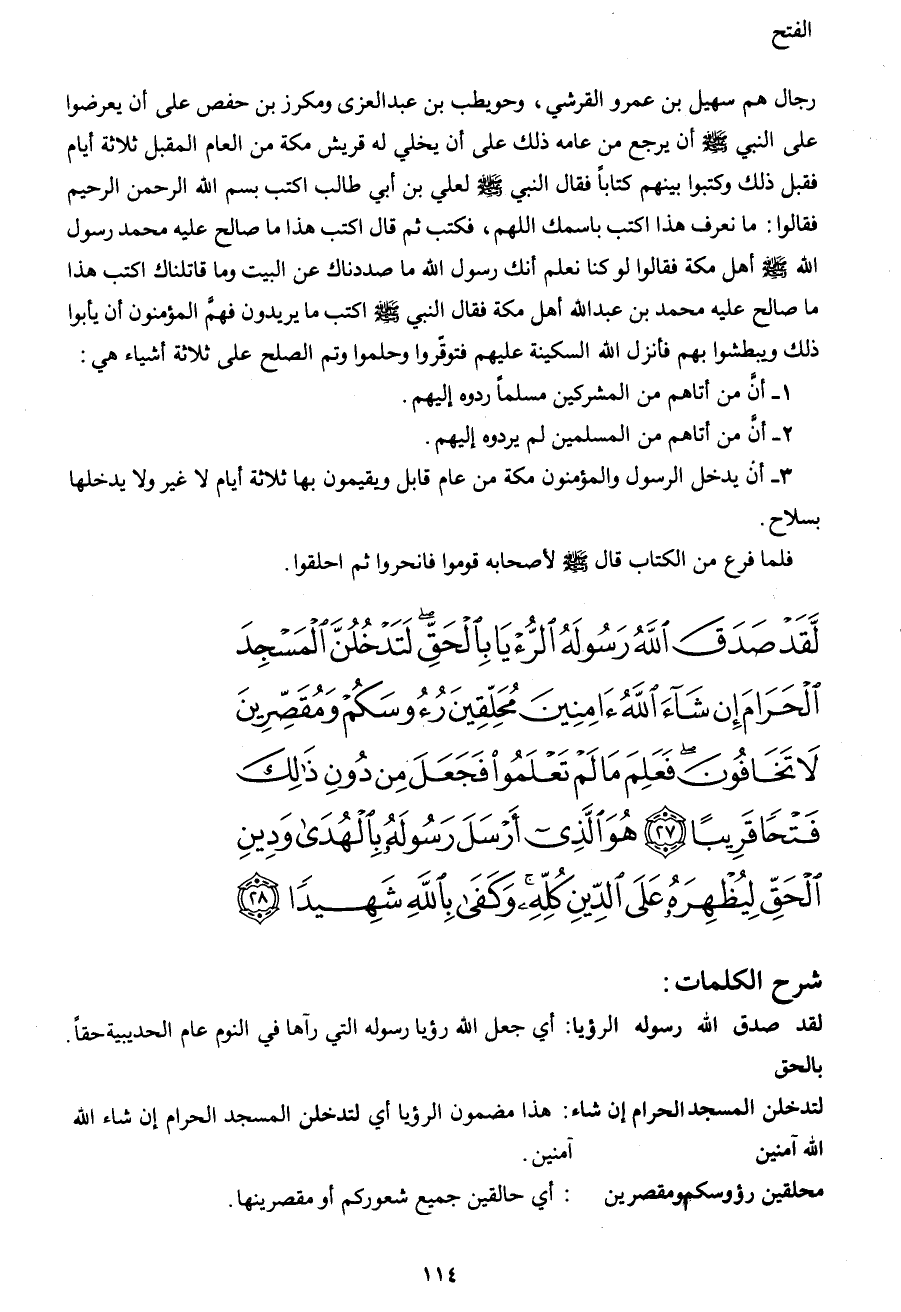 الفتح
رجال هم سهيل بن عمرو القرشي، وحويطب بن عبدالعزى ومكرز بن حفص على أن يعرضوا
على النبي ﷺ أن يرجع من عامه ذلك على أن يخلي له قريش مكة من العام المقبل ثلاثة أيام
فقبل ذلك وكتبوا بينهم كتاباً فقال النبي ﷺ لعلي بن أبي طالب اكتب بسم الله الرحمن الرحيم
فقالوا: ما نعرف هذا اكتب باسمك اللهم، فكتب ثم قال اكتب هذا ما صالح عليه محمد رسول
الله ﷺ أهل مكة فقالوا لو كنا نعلم أنك رسول الله ما صددناك عن البيت وما قاتلناك اكتب هذا
ما صالح عليه محمد بن عبدالله أهل مكة فقال النبي ﷺ اكتب ما يريدون فهمَّ المؤمنون أن يأبوا
ذلك ويبطشوا بهم فأنزل الله السكينة عليهم فتوقّروا وحلموا وتم الصلح على ثلاثة أشياء هي:
١ـ أنَّ من أتاهم من المشركين مسلماً ردوه إليهم.
٢ـ أنَّ من أتاهم من المسلمين لم يردوه إليهم.
٣ـ أن يدخل الرسول والمؤمنون مكة من عام قابل ويقيمون بها ثلاثة أيام لا غير ولا يدخلها
بسلاح.
فلما فرع من الكتاب قال ﷺ لأصحابه قوموا فانحروا ثم احلقوا.
لَّقَدْ صَدَقَ ٱللَّهُ رَسُولَهُ ٱلرُّءْيَا بِٱلْحَقِّ ۖ لَتَدْخُلُنَّ ٱلْمَسْجِدَ
ٱلْحَرَامَ إِن شَآءَ ٱللَّهُ ءَامِنِينَ مُحَلِّقِينَ رُءُوسَكُمْ وَمُقَصِّرِينَ
لَا تَخَافُونَ ۖ فَعَلِمَ مَا لَمْ تَعْلَمُوا۟ فَجَعَلَ مِن دُونِ ذَٰلِكَ
فَتْحًا قَرِيبًا ﴿٢٧﴾ هُوَ ٱلَّذِىٓ أَرْسَلَ رَسُولَهُۥ بِٱلْهُدَىٰ وَدِينِ
ٱلْحَقِّ لِيُظْهِرَهُۥ عَلَى ٱلدِّينِ كُلِّهِۦ ۚ وَكَفَىٰ بِٱللَّهِ شَهِيدًا ﴿٢٨﴾
شرح الكلمات:
لقد صدق الله رسوله الرؤيا: أي جعل الله رؤيا رسوله التي رآها في النوم عام الحديبية حقاً.
بالحق
لتدخلن المسجد الحرام إن شاء: هذا مضمون الرؤيا أي لتدخلن المسجد الحرام إن شاء الله
الله آمنين آمنين.
محلقين رؤوسكم ومقصرين : أي حالقين جميع شعوركم أو مقصرينها.
١١٤